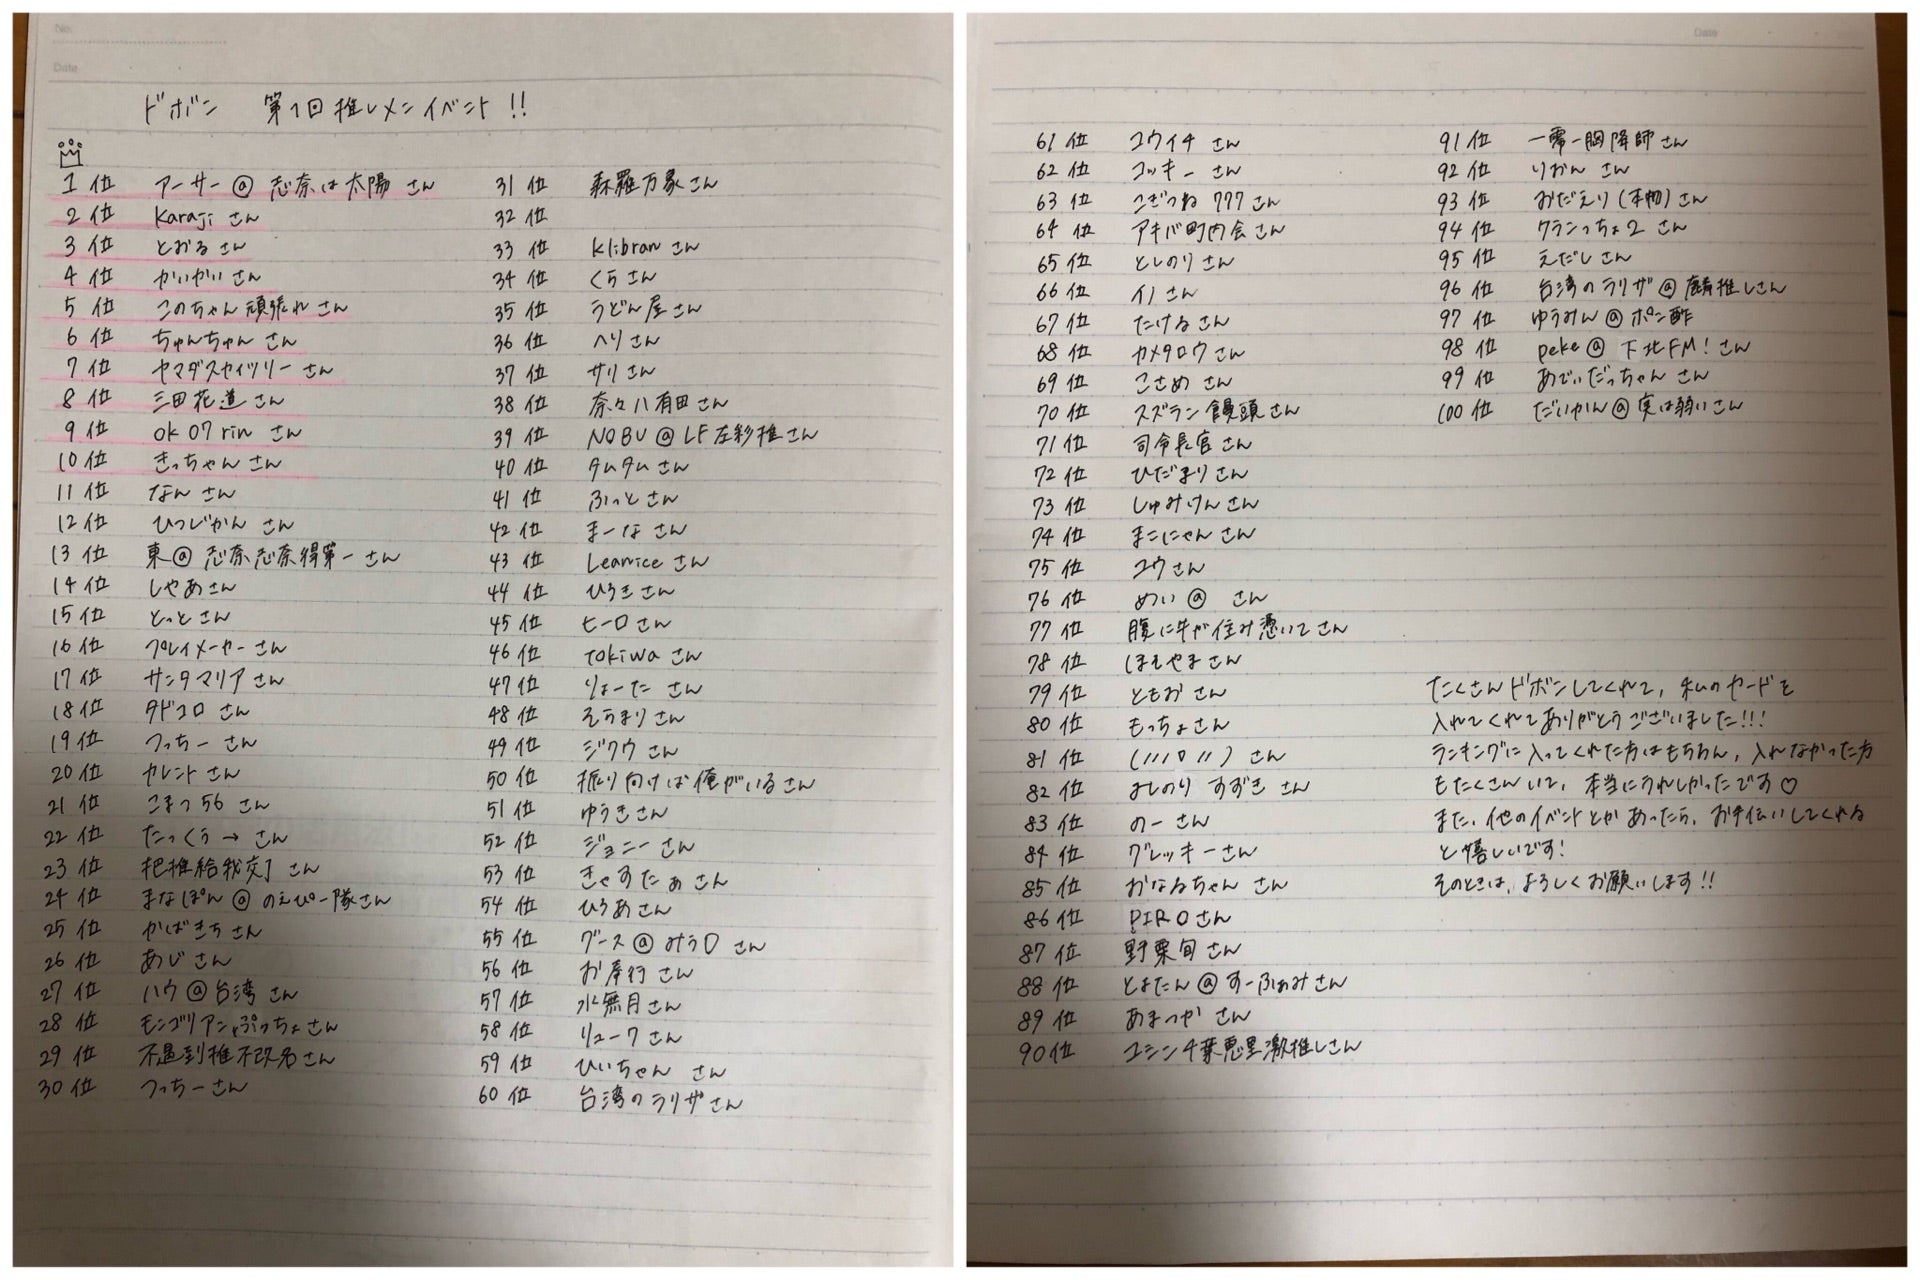 No.
Date
ドボン 第1回推しメンイベント!!
1位 アーサー@志奈は太陽さん
2位 karajiさん
3位 とおるさん
4位 かいかいさん
5位 このちゃん頑張れさん
6位 ちゃんちゃんさん
7位 ヤマダスカイツリーさん
8位 三田花道さん
9位 ok07rinさん
10位 きっちゃんさん
11位 なんさん
12位 ひつじかんさん
13位 東@志奈志奈得第一さん
14位 しゃあさん
15位 とっとさん
16位 プレイメーカーさん
17位 サンタマリアさん
18位 タドコロさん
19位 つっちーさん
20位 カレントさん
21位 こまつ56さん
22位 たっくぅ→さん
23位 把推給我交了さん
24位 まなぽん@のえぴー隊さん
25位 かばきちさん
26位 あじさん
27位 ハウ@台湾さん
28位 モンゴリアンぷっちょさん
29位 不過到推不改名さん
30位 つっちーさん
31位 森羅万象さん
32位
33位 klibranさん
34位 くらさん
35位 うどん屋さん
36位 ヘリさん
37位 サリさん
38位 奈々八有田さん
39位 NOBU@LF左彩推さん
40位 タムタムさん
41位 ふっとさん
42位 まーなさん
43位 Leamiceさん
44位 ひろきさん
45位 ヒーロさん
46位 tokiwaさん
47位 りょーたさん
48位 そうまりさん
49位 ジクウさん
50位 振り向けば俺がいるさん
51位 ゆうきさん
52位 ジョニーさん
53位 きゃすたぁさん
54位 ひろあさん
55位 グース@みうロさん
56位 お奉行さん
57位 水無月さん
58位 リュークさん
59位 ひいちゃんさん
60位 台湾のラリサさん
Date
61位 ユウイチさん
62位 コッキーさん
63位 こぎつね777さん
64位 アキバ町内会さん
65位 としのりさん
66位 イノさん
67位 たけるさん
68位 カメタロウさん
69位 こさめさん
70位 スズラン饅頭さん
71位 司令長官さん
72位 ひだまりさん
73位 しゅみけんさん
74位 まこにゃんさん
75位 ユウさん
76位 めい@ さん
77位 腹に牛が住み憑いてさん
78位 ほえやまさん
79位 ともおさん
80位 もっちょさん
81位 (〃ロ〃)さん
82位 よしのりすずきさん
83位 のーさん
84位 グレッキーさん
85位 おなるちゃんさん
86位 PIROさん
87位 野粟旬さん
88位 とよたん@すーふぁみさん
89位 あまつかさん
90位 ユシン千葉恵里激推しさん
91位 一零一胸降師さん
92位 りおんさん
93位 おだえり(本物)さん
94位 クランっちょ2さん
95位 えだしさん
96位 台湾のラリサ@麟推しさん
97位 ゆうみん@ポン酢
98位 peke@下北FM!さん
99位 あでぃだっちゃんさん
100位 だいかん@実は弱いさん
たくさんドボンしてくれて、私のカードを
入れてくれてありがとうございました!!!
ランキングに入ってくれた方はもちろん、入れなかった方
もたくさんいて、本当にうれしかったです♡
また、他のイベントとかあったら、お手伝いしてくれる
と嬉しいです!
そのときは、よろしくお願いします!!